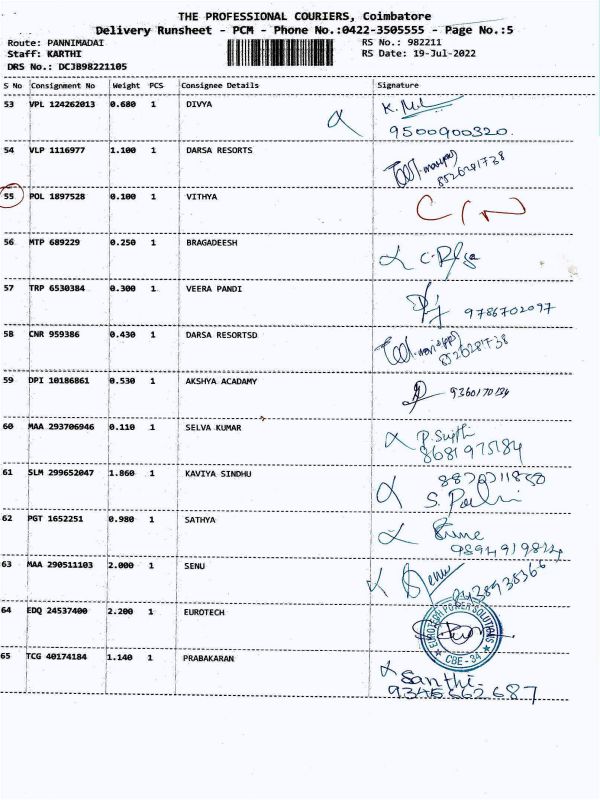 THE PROFESSIONAL COURIERS, Coimbatore
Delivery Runsheet - PCM - Phone No.:0422-3505555 - Page No.:5
Route: PANNIMADAI RS No.: 982211
Staff: KARTHI RS Date: 19-Jul-2022
DRS No.: DCJB98221105
S No Consignment No Weight PCS Consignee Details Signature
53 VPL 124262013 0.680 1 DIVYA
9500900320.
54 VLP 1116977 1.100 1 DARSA RESORTS
8526281738
55 POL 1897528 0.100 1 VITHYA
56 MTP 689229 0.250 1 BRAGADEESH
57 TRP 6530384 0.300 1 VEERA PANDI
9786702097
58 CNR 959386 0.430 1 DARSA RESORTSD
8526281738
59 DPI 10186861 0.530 1 AKSHYA ACADAMY
60 MAA 293706946 0.110 1 SELVA KUMAR
8681975184
61 SLM 299652047 1.860 1 KAVIYA SINDHU
62 PGT 1652251 0.980 1 SATHYA
9894919814
63 MAA 290511103 2.000 1 SENU
64 EDQ 24537400 2.200 1 EUROTECH
EUROTECH POWER SOLUTIONS
CBE - 34
65 TCG 40174184 1.140 1 PRABAKARAN
Santhi.
9345662687